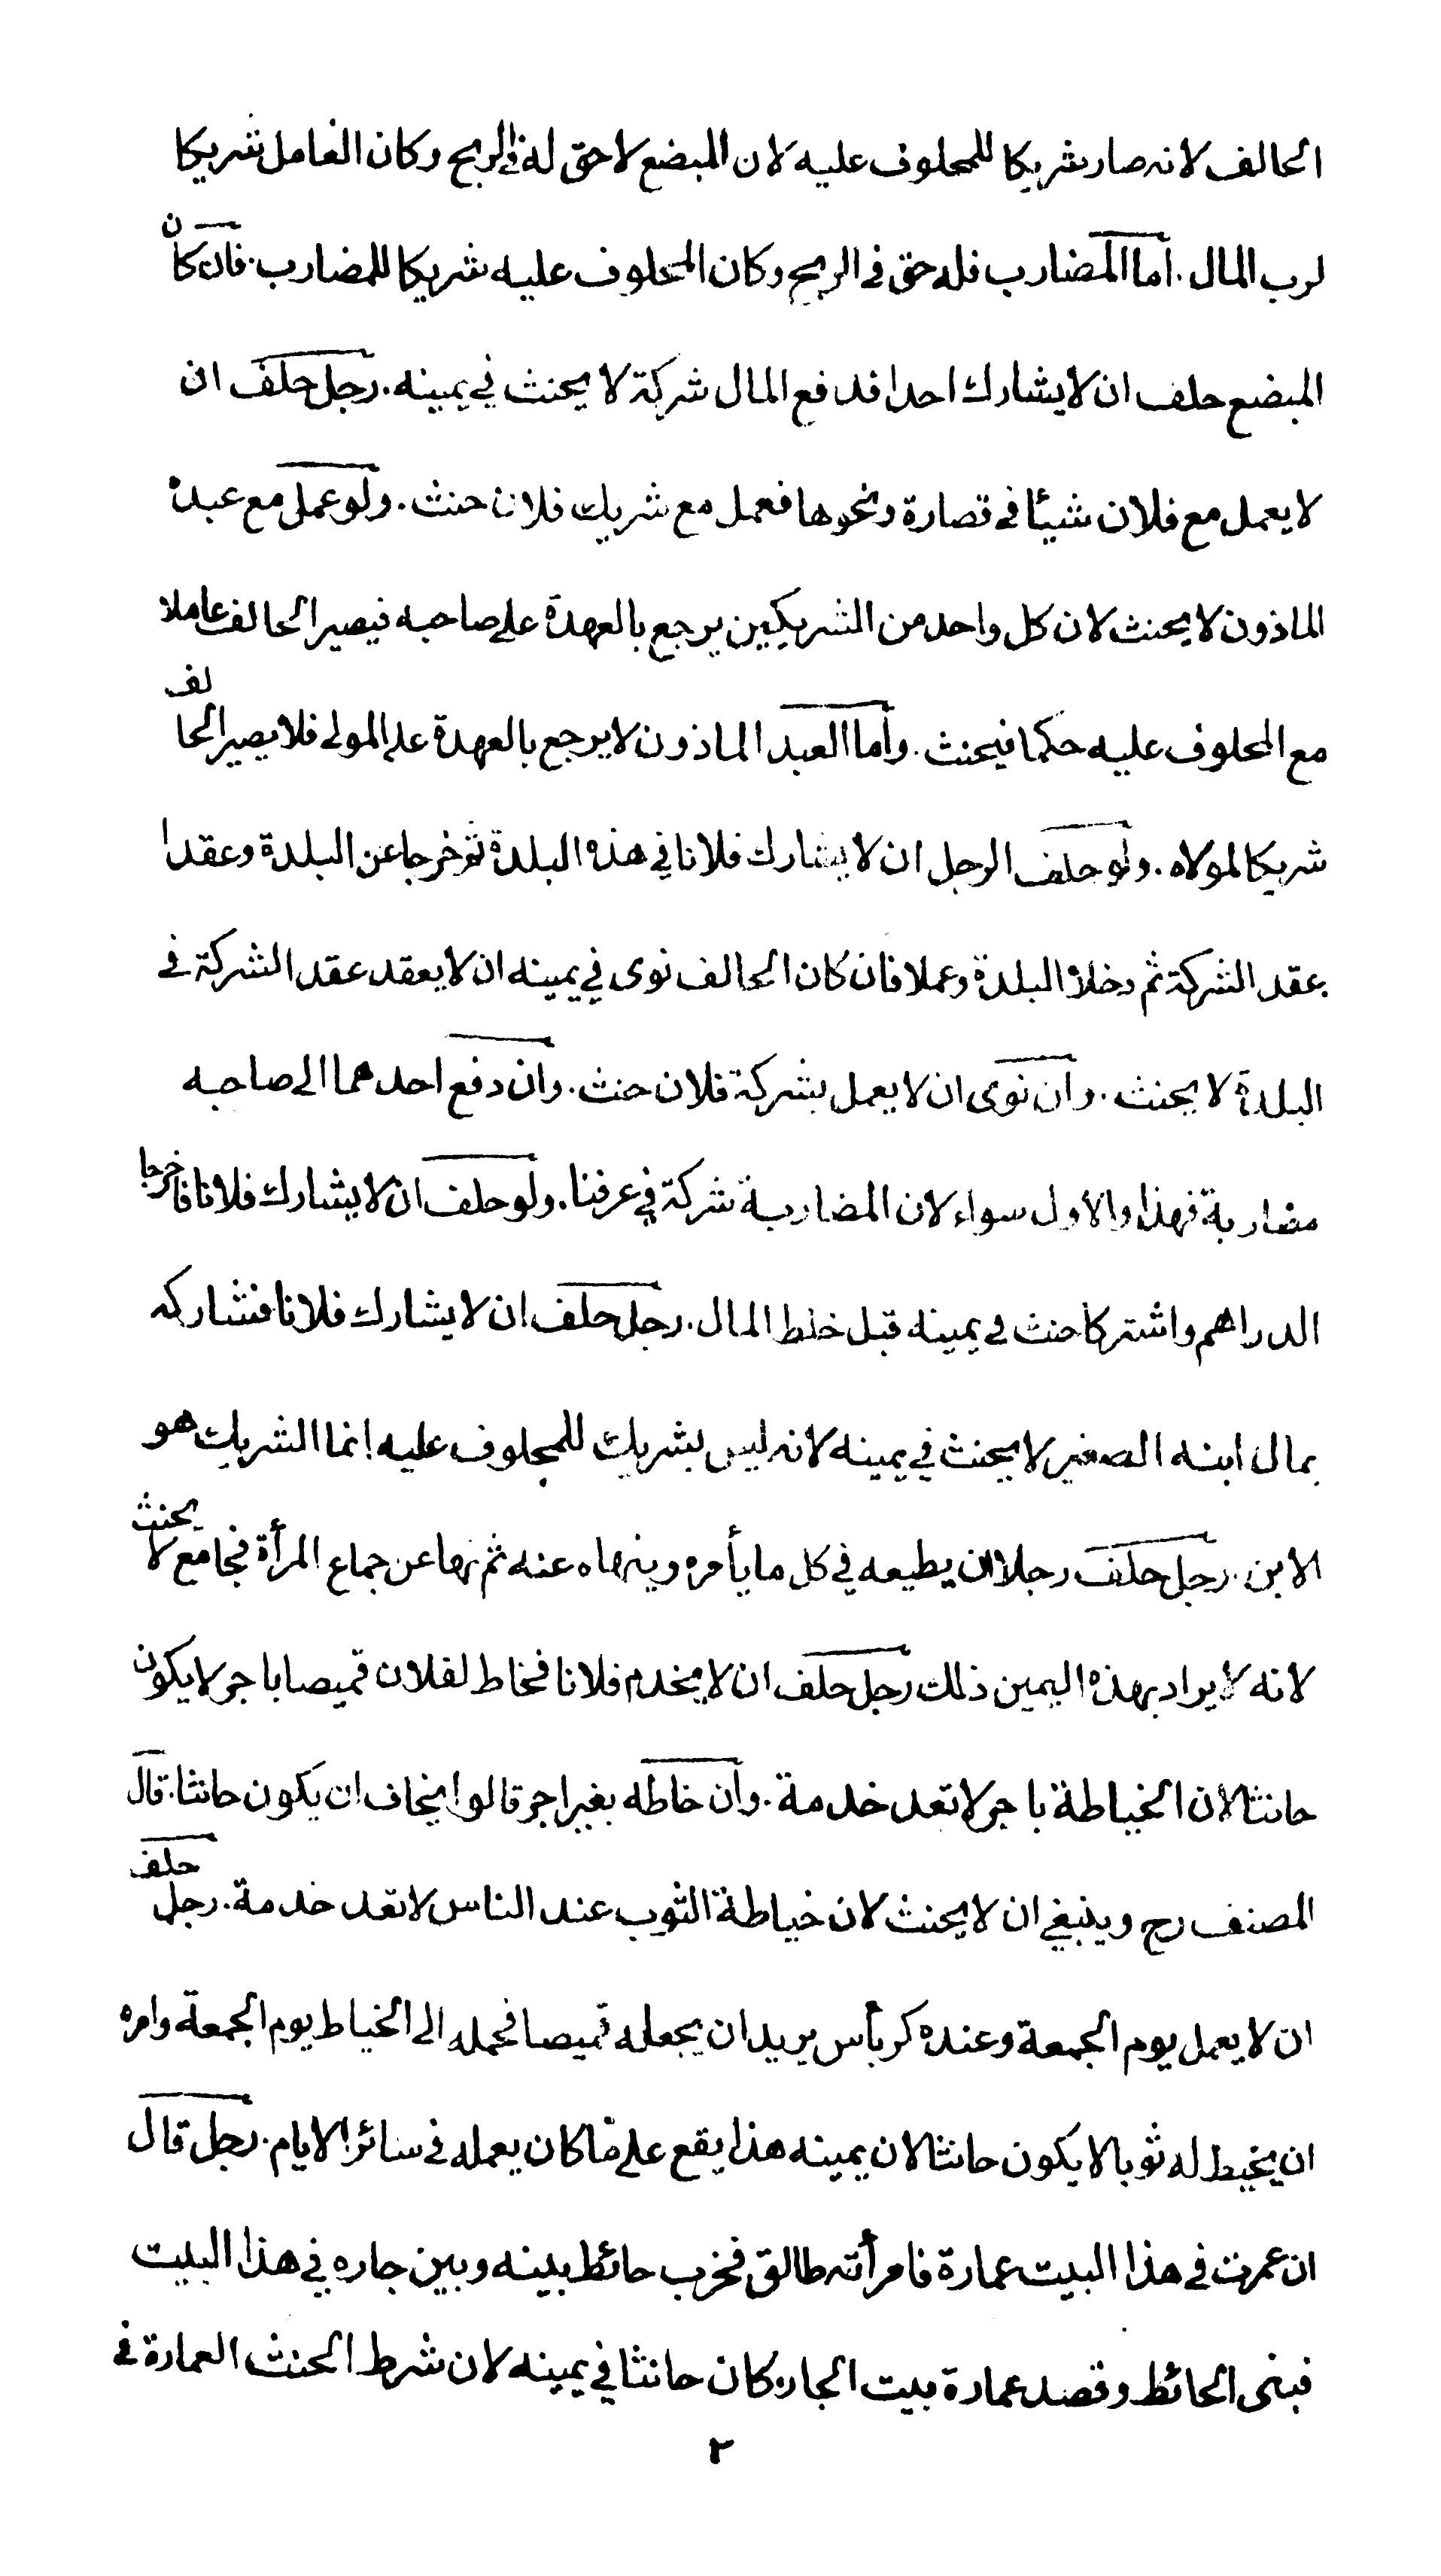 الحالف لانه صار شريكا للمحلوف عليه لان المبضع لا حق له في الربح وكان العامل شريكا
لرب المال . أما المضارب فله حق في الربح وكان المحلوف عليه شريكا للمضارب . فان كان
المبضع حلف ان لا يشارك احدا فدفع المال شركة لا يحنث في يمينه . رجل حلف ان
لا يعمل مع فلان شيئا في قصارة ونحوها فعمل مع شريك فلان حنث . ولو عمل مع عبده
الماذون لا يحنث لان كل واحد من الشريكين يرجع بالعهدة على صاحبه فيصير الحالف عاملا
مع المحلوف عليه حكما فيحنث . وأما العبد الماذون لا يرجع بالعهدة على المولى فلا يصير الحالف
شريكا لمولاه . ولو حلف الرجل ان لا يشارك فلانا في هذه البلدة ثم خرجا عن البلدة وعقدا
عقد الشركة ثم دخلا البلدة وعملا فان كان الحالف نوى في يمينه ان لا يعقد عقد الشركة في
البلدة لا يحنث . وان نوى ان لا يعمل بشركة فلان حنث . وان دفع احدهما الى صاحبه
مضاربة فهذا والاول سواء لان المضاربة شركة في عرفنا . ولو حلف ان لا يشارك فلانا فاخرجا
الدراهم واشتركا حنث في يمينه قبل خلط المال . رجل حلف ان لا يشارك فلانا فشاركه
بمال ابنه الصغير لا يحنث في يمينه لانه ليس بشريك للمحلوف عليه إنما الشريك هو
الابن . رجل حلف رجلا ان يطيعه في كل ما يأمره وينهاه عنه ثم نهاه عن جماع المرأة فجامع لا يحنث
لانه لا يراد بهذه اليمين ذلك رجل حلف ان لا يخدم فلانا فخاط لفلان قميصا باجر لا يكون
حانثا لان الخياطة باجر لا تعد خدمة . وان خاطه بغير اجر قالوا يخاف ان يكون حانثا . قال
المصنف رح وينبغي ان لا يحنث لان خياطة الثوب عند الناس لا تعد خدمة . رجل حلف
ان لا يعمل يوم الجمعة وعنده كرباس يريد ان يجعله قميصا فحمله الى الخياط يوم الجمعة وامره
ان يخيط له ثوبا لا يكون حانثا لان يمينه هذا يقع على ما كان يعمله في سائر الايام . رجل قال
ان عمرت في هذا البيت عمارة فامرأته طالق فخرب حائط بينه وبين جاره في هذا البيت
فبنى الحائط وقصد عمارة بيت الجار . كان حانثا في يمينه لان شرط الحنث العمارة في
٢